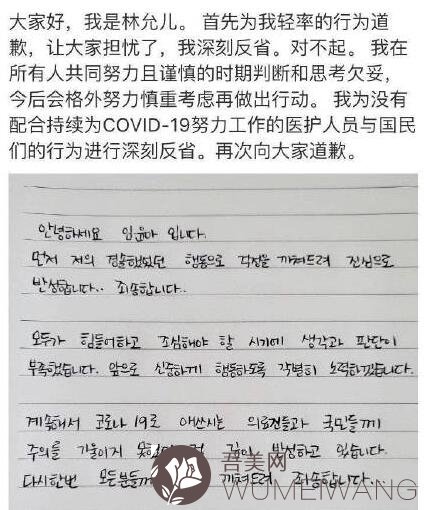 大家好，我是林允儿。 首先为我轻率的行为道
歉，让大家担忧了，我深刻反省。对不起。 我在
所有人共同努力且谨慎的时期判断和思考欠妥，
今后会格外努力慎重考虑再做出行动。 我为没有
配合持续为COVID-19努力工作的医护人员与国民
们的行为进行深刻反省。再次向大家道歉。
안녕하세요 임윤아 입니다.
먼저 저의 경솔했었던 행동으로 걱정을 끼쳐드려 진심으로
반성합니다.. 죄송합니다..
모두가 힘들어하고 조심해야 할 시기에 생각과 판단이
부족했습니다. 앞으로 신중하게 행동하도록 각별히 노력하겠습니다.
계속해서 코로나 19로 애쓰시는 의료진들과 국민들께
주의를 기울이지 깊이 반성하고 있습니다.
다시한번 모든분들께 끼쳐드려 죄송합니다..
吾美网
WUMEIWANG